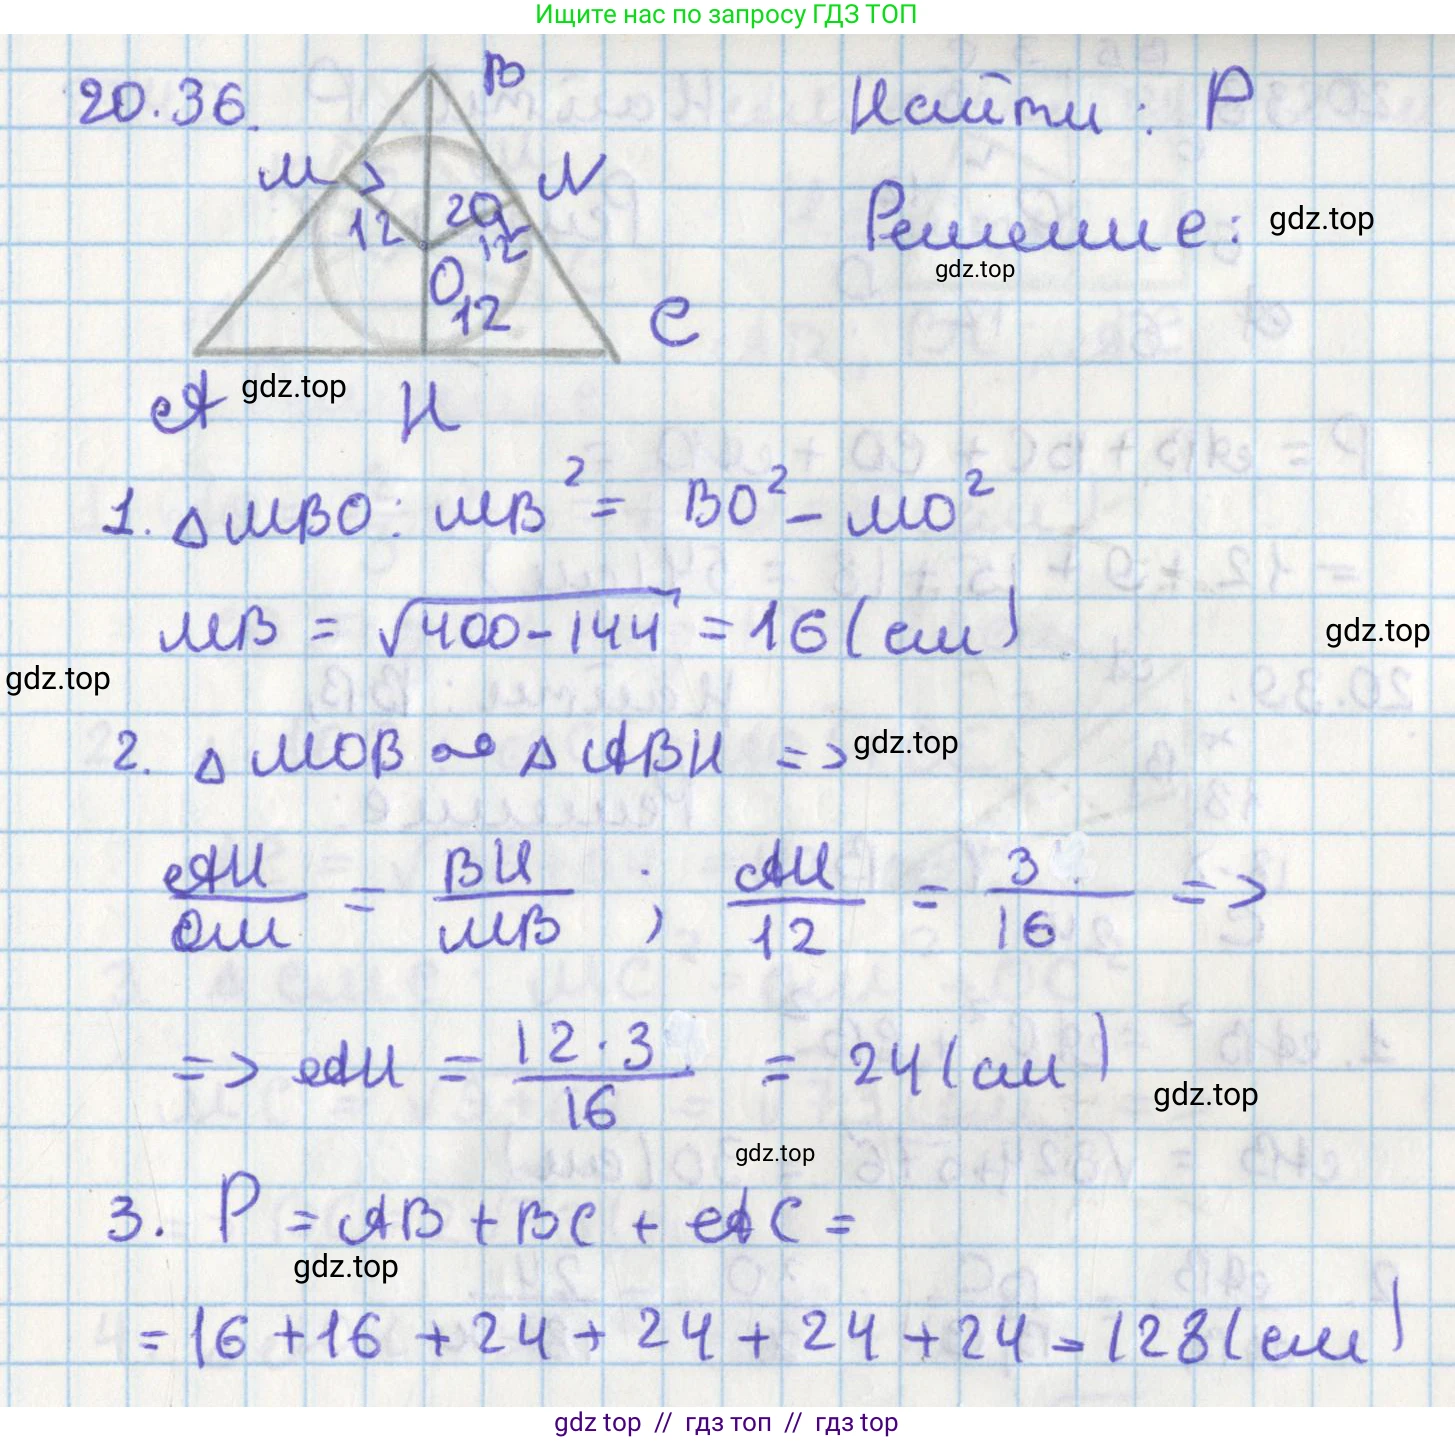 Ищите нас по запросу ГДЗ ТОП
20.36.
B
Найти: P
M
N
12
20
12
Решение:
gdz.top
gdz.top
O
12
C
A
gdz.top
H
1. △MBO: MB² = BO² - MO²
MB = √400-144 = 16 (см)
gdz.top
gdz.top
2. △MOB ∾ △ABH =>
gdz.top
AH/OM = BH/MB ; AH/12 = 3/16 =>
=> AH = 12·3/16 = 24 (см)
gdz.top
gdz.top
3. P = AB + BC + AC =
gdz.top
= 16 + 16 + 24 + 24 + 24 + 24 = 128 (см)
gdz top // гдз топ // гдз top